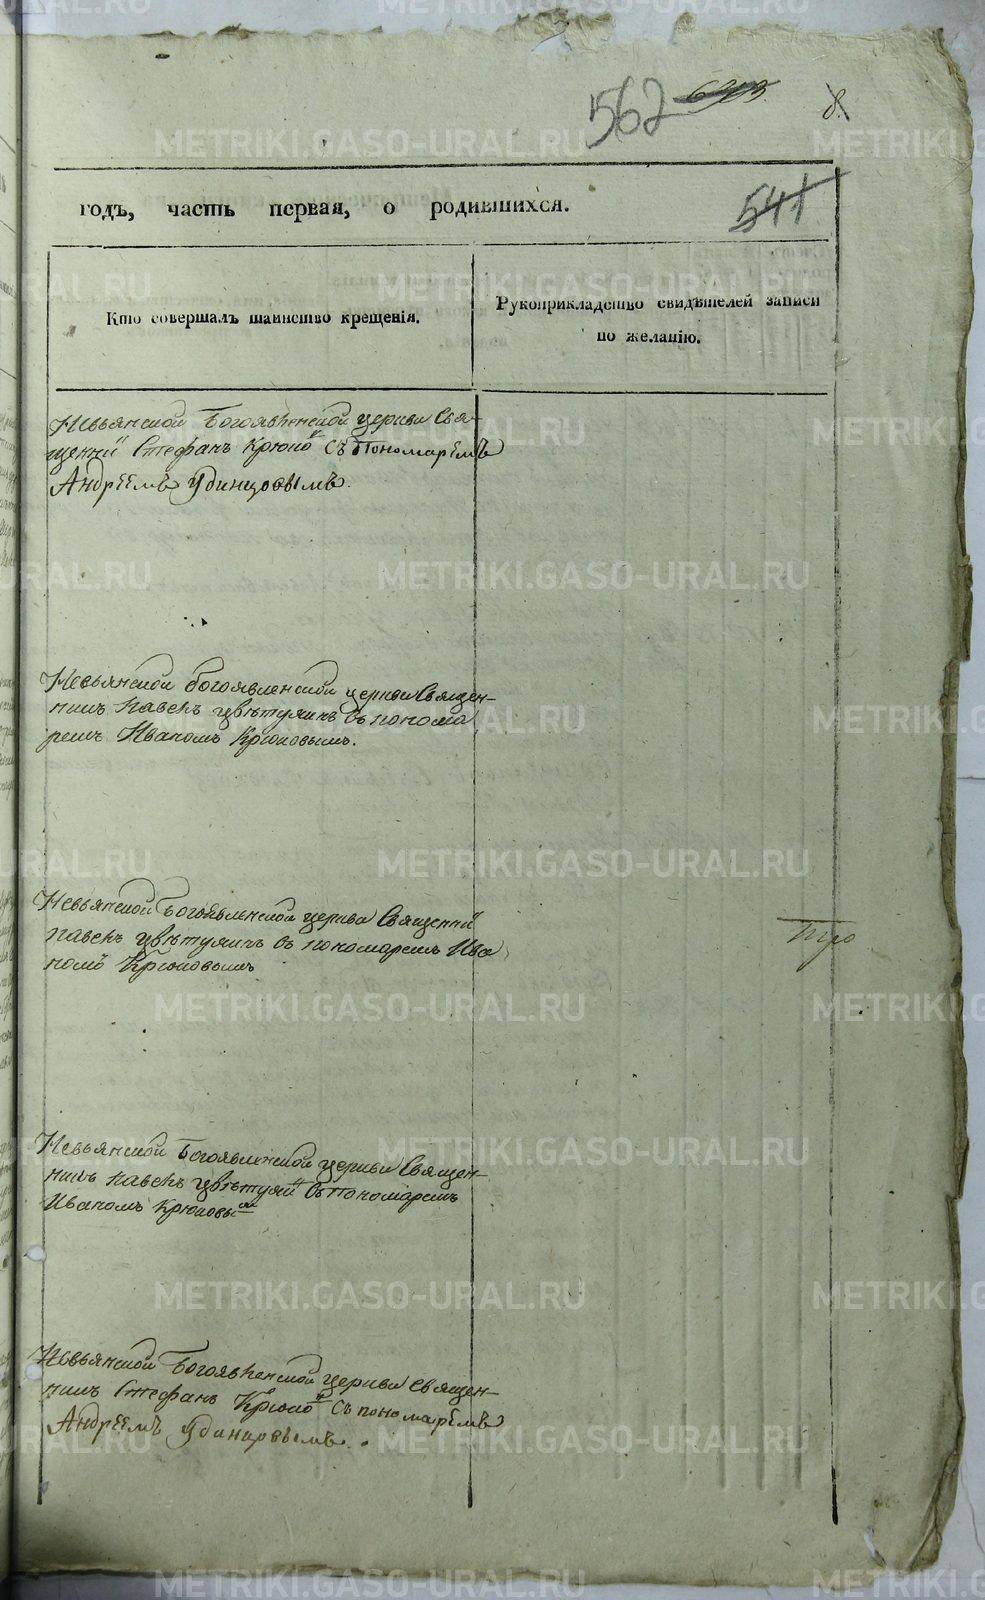 562 693. 8.
541
годъ, часть первая, о родившихся.
Кто совершалъ таинство крещенія.
Рукоприкладство свидѣтелей записи
по желанію.
Невьянской Богоявленской церкви Свя-
щенни Стефанъ Крюко съ Пономаремъ
Андреемъ Удинцовымъ.
Невьянской Богоявленской церкви Священ-
никъ Павелъ Цвѣтухинъ съ понома
ремъ Иваномъ Крюковымъ.
Невьянской Богоявленской церкви Священни
Павелъ Цвѣтухинъ съ пономаремъ Ива
номъ Крюковымъ
Невьянской Богоявленской церкви Священ-
никъ Павелъ Цвѣтухи съ пономаремъ
Иваномъ Крюковы
Невьянской Богоявленской церкви Священ-
никъ Стефанъ Крюко съ пономаремъ
Андреемъ Удинцовымъ.
METRIKI.GASO-URAL.RU